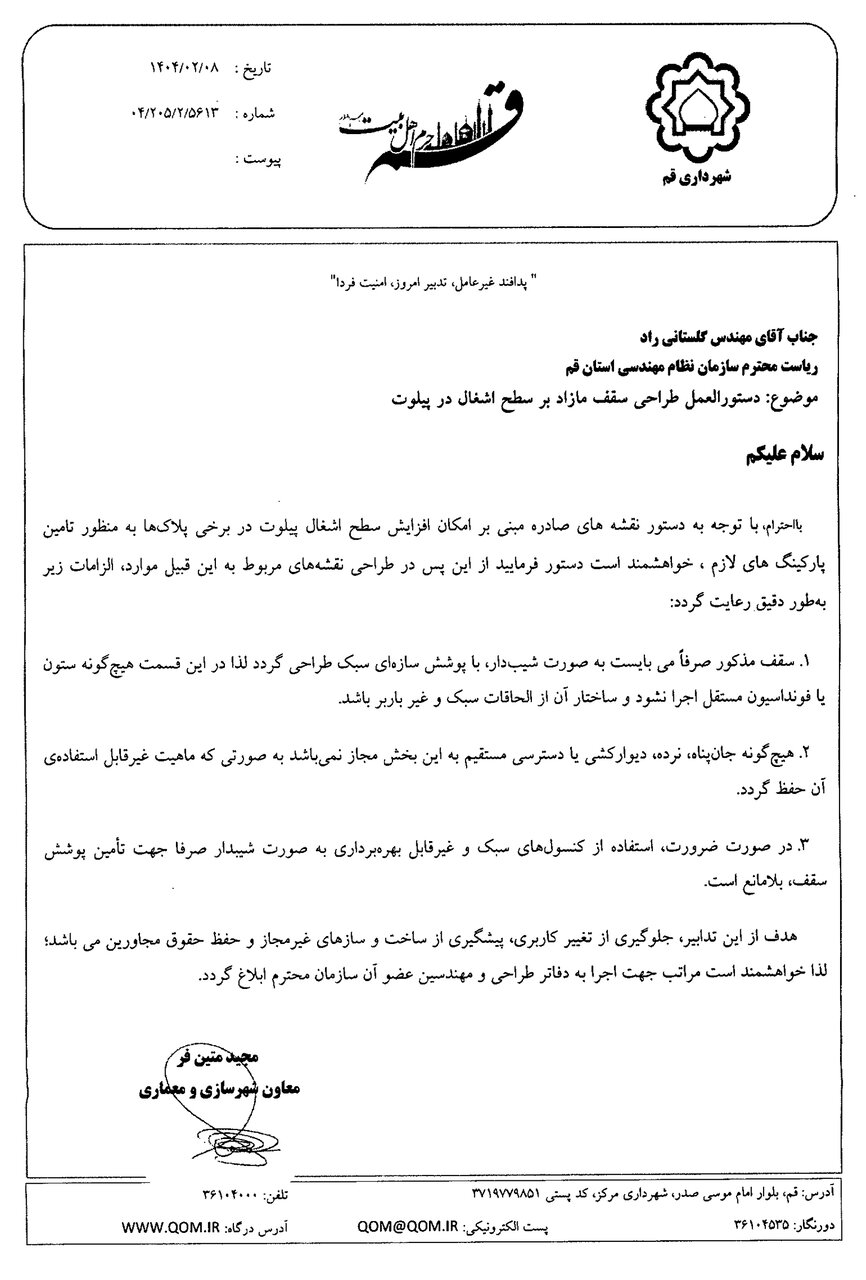 تاریخ : ۱۴۰۴/۰۲/۰۸
شماره : ۰۴/۲۰۵/۲/۵۶۱۳
پیوست :
قم
حرم اهل بیت
شهرداری قم
" پدافند غیرعامل، تدبیر امروز، امنیت فردا"
جناب آقای مهندس گلستانی راد
ریاست محترم سازمان نظام مهندسی استان قم
موضوع: دستورالعمل طراحی سقف مازاد بر سطح اشغال در پیلوت
سلام علیکم
بااحترام، با توجه به دستور نقشه های صادره مبنی بر امکان افزایش سطح اشغال پیلوت در برخی پلاک‌ها به منظور تامین
پارکینگ های لازم ، خواهشمند است دستور فرمایید از این پس در طراحی نقشه‌های مربوط به این قبیل موارد، الزامات زیر
به‌طور دقیق رعایت گردد:
۱. سقف مذکور صرفاً می بایست به صورت شیب‌دار، با پوشش سازه‌ای سبک طراحی گردد لذا در این قسمت هیچ‌گونه ستون
یا فونداسیون مستقل اجرا نشود و ساختار آن از الحاقات سبک و غیر باربر باشد.
۲. هیچ‌گونه جان‌پناه، نرده، دیوارکشی یا دسترسی مستقیم به این بخش مجاز نمی‌باشد به صورتی که ماهیت غیرقابل استفاده‌ی
آن حفظ گردد.
۳. در صورت ضرورت، استفاده از کنسول‌های سبک و غیرقابل بهره‌برداری به صورت شیبدار صرفا جهت تأمین پوشش
سقف، بلامانع است.
هدف از این تدابیر، جلوگیری از تغییر کاربری، پیشگیری از ساخت و سازهای غیرمجاز و حفظ حقوق مجاورین می باشد؛
لذا خواهشمند است مراتب جهت اجرا به دفاتر طراحی و مهندسین عضو آن سازمان محترم ابلاغ گردد.
مجید متین فر
معاون شهرسازی و معماری
آدرس: قم، بلوار امام موسی صدر، شهرداری مرکز، کد پستی ۳۷۱۹۷۷۹۸۵۱
تلفن: ۳۶۱۰۴۰۰۰
دورنگار: ۳۶۱۰۴۵۳۵
پست الکترونیکی: QOM@QOM.IR
آدرس درگاه: WWW.QOM.IR